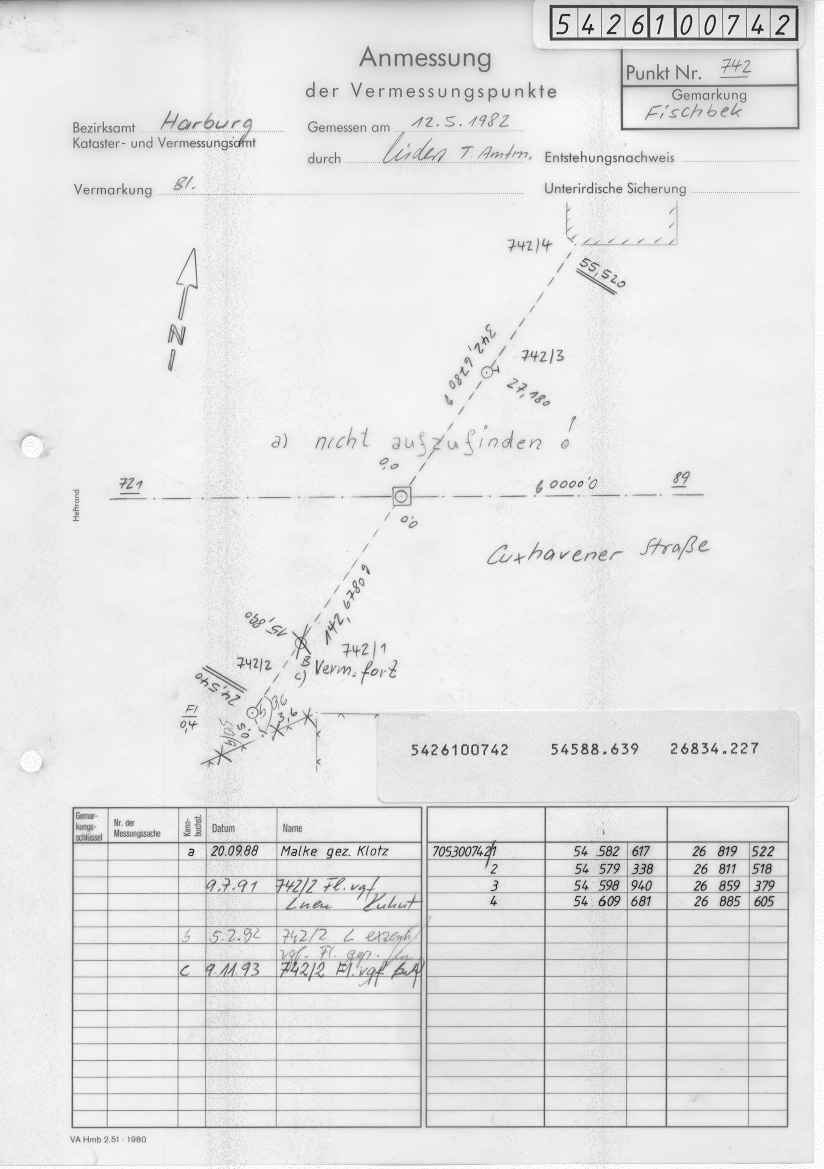 5426100742
Anmessung
der Vermessungspunkte
Punkt Nr. 742
Gemarkung
Fischbek
Bezirksamt Harburg
Kataster- und Vermessungsamt
Gemessen am 12.5.1982
durch Linden T. Amtm.
Entstehungsnachweis
Vermarkung Bl.
Unterirdische Sicherung
742/4
55,520
N
342,6780 g
742/3
27,180
a) nicht aufzufinden !
0,0
721
g 0000'0
89
Heftrand
0,0
Cuxhavener Straße
142,6780 g
15,890
742/1
742/2
B
c) Verm. fort
24,540
Fl
0,4
0,5
3,6
5426100742 54588.639 26834.227
Gemar-kungs-schlüssel
Nr. der Messungssache
Kenn-buchst.
Datum
Name
a 20.09.88 Malke gez. Klotz
705300742/1 54 582 617 26 819 522
2 54 579 338 26 811 518
9.7.91 742/2 Fl. vgf
3 54 598 940 26 859 379
4 54 609 681 26 885 605
b 5.2.92 742/2 L
vgf. Fl. gep.
c 9.11.93 742/2 Fl. vgf
VA Hmb 2.51 · 1980